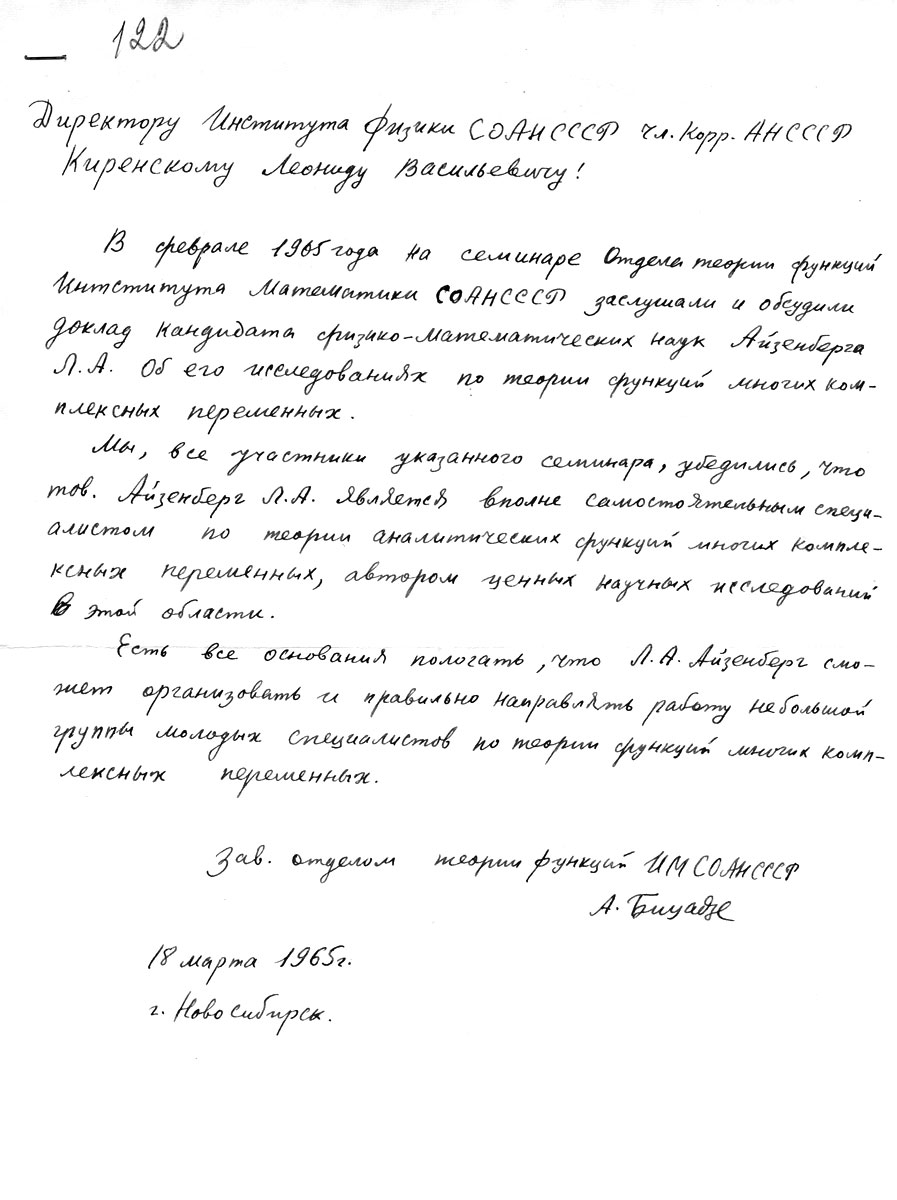 122
Директору Института физики СОАНСССР чл. корр. АНСССР
Киренскому Леониду Васильевичу!
В феврале 1965 года на семинаре Отдела теории функций
Интститута Математики СОАНСССР заслушали и обсудили
доклад кандидата физико-математических наук Айзенберга
Л.А. Об его исследованиях по теории функций многих ком-
плексных переменных.
Мы, все участники указанного семинара, убедились, что
тов. Айзенберг Л.А. является вполне самостоятельным специ-
алистом по теории аналитических функций многих компле-
ксных переменных, автором ценных научных исследований
в этой области.
Есть все основания пологать, что Л.А. Айзенберг смо-
жет организовать и правильно направлять работу небольшой
группы молодых специалистов по теории функций многих комп-
лексных переменных.
Зав. отделом теории функций ИМСОАНСССР
А. Бицадзе
18 марта 1965г.
г. Новосибирск.